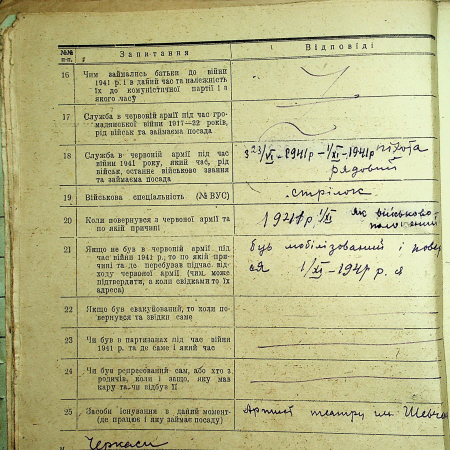 №№ п-п. Запитання Відповіді
16 Чим займались батьки до війни
1941 р. і в даний час та належність
їх до комуністичної партії і з
якого часу
17 Служба в червоній армії під час гро-
мадянської війни 1917—22 років,
рід військ та займаєма посада
18 Служба в червоній армії під час
війни 1941 року, який час, рід
військ, останнє військове звання
та займаєма посада
з 23/VI - 1941р - 1/XI - 1941р піхота
рядовий
19 Військова спеціальність (№ ВУС)
стрілок
20 Коли повернувся з червоної армії та
по якій причині
1941р 1/XI як військово
полонений
21 Якщо не був в червоній армії під
час війни 1941 р., то по якій при-
чині та де перебував підчас від-
ходу червоної армії (чим може
підтвердити, а коли свідками то їх
адреса)
був мобілізований і повер
ся 1/XI - 1941 р. я
22 Якщо був евакуйований, то коли по-
вернувся та звідки саме
23 Чи був в партизанах під час війни
1941 р. та де саме і який час
24 Чи був репресований сам, або хто з
родичів, коли і защо, яку мав
кару та чи відбув її
25 Засоби існування в даний момент
(де працює і яку займає посаду)
Артист театру ім. Шевч
Черкаси